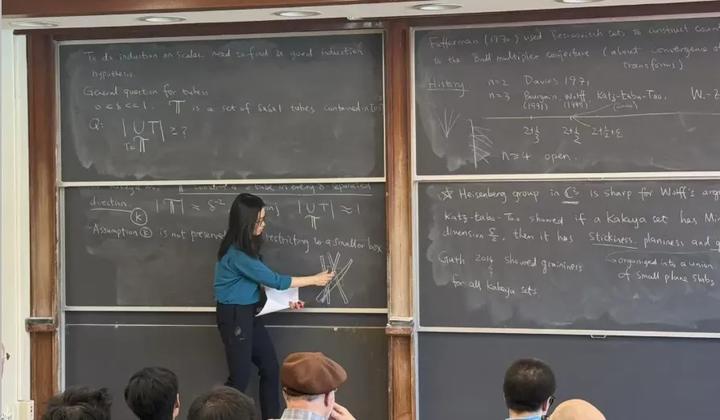 To do induction on scales, need to find a good induction
hypothesis.
General question for tubes
0 < δ < 1. 𝕋 is a set of δxδx1 tubes contained in
Q: | ∪ T | ≥ ?
T∈𝕋
direction. (K) |𝕋| ≈ δ^-2 | ∪ T | ≈ 1
𝕋
- Assumption (K) is not restricting to a smaller box
Fefferman (1970) used sets to construct
to the Ball multiplier conjecture (about convergence of
transforms)
History n=2 Davies 1971
n=3 Bourgain, Wolff, Katz-Laba-Tao, W.-Z
(1991) (1995)
2+1/3 2+1/2 2+1/2+ε
n≥4 open.
Heisenberg group in ℂ^3 is sharp for Wolff's
Katz-Laba-Tao showed if a Kakeya set has
dimension 5/2, then it has stickiness, planiness and
Guth 2014 showed graininess
for all Kakeya sets
organized into a union
of small plane slabs